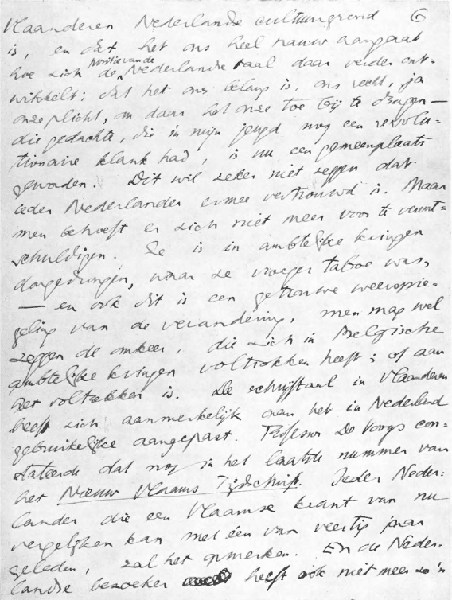 Vlaanderen Nederlandse cultuurgrond 6
is, en dat het ons heel nauw aangaat
hoe zich de Nederlandse taal daar verder ont-
wikkelt; dat het ons belang is, ons recht, ja
onze plicht, om daar het onze toe bij te dragen —
die gedachte, die in mijn jeugd nog een revolu-
tionaire klank had, is nu een gemeenplaats
geworden. Dit wil zeker niet zeggen dat
ieder Nederlander ermee vertrouwd is. Maar
men behoeft er zich niet meer voor te veront-
schuldigen. Ze is in ambtelijke kringen
doorgedrongen, waar ze vroeger taboe was
— en ook dit is een getrouwe weerspie-
geling van de verandering, men mag wel
zeggen de omkeer, die zich in Belgische
ambtelijke kringen voltrokken heeft; of aan
het voltrekken is. De schrijftaal in Vlaanderen
heeft zich aanmerkelijk aan het in Nederland
gebruikelijke aangepast. Professor De Vooys con-
stateerde dat nog in het laatste nummer van
het Nieuw Vlaams Tijdschrift. Ieder Neder-
lander die een Vlaamse krant van nu
vergelijken kan met een van veertig jaar
geleden, zal het opmerken. En de Neder-
landse bezoeker heeft ook niet meer zo'n